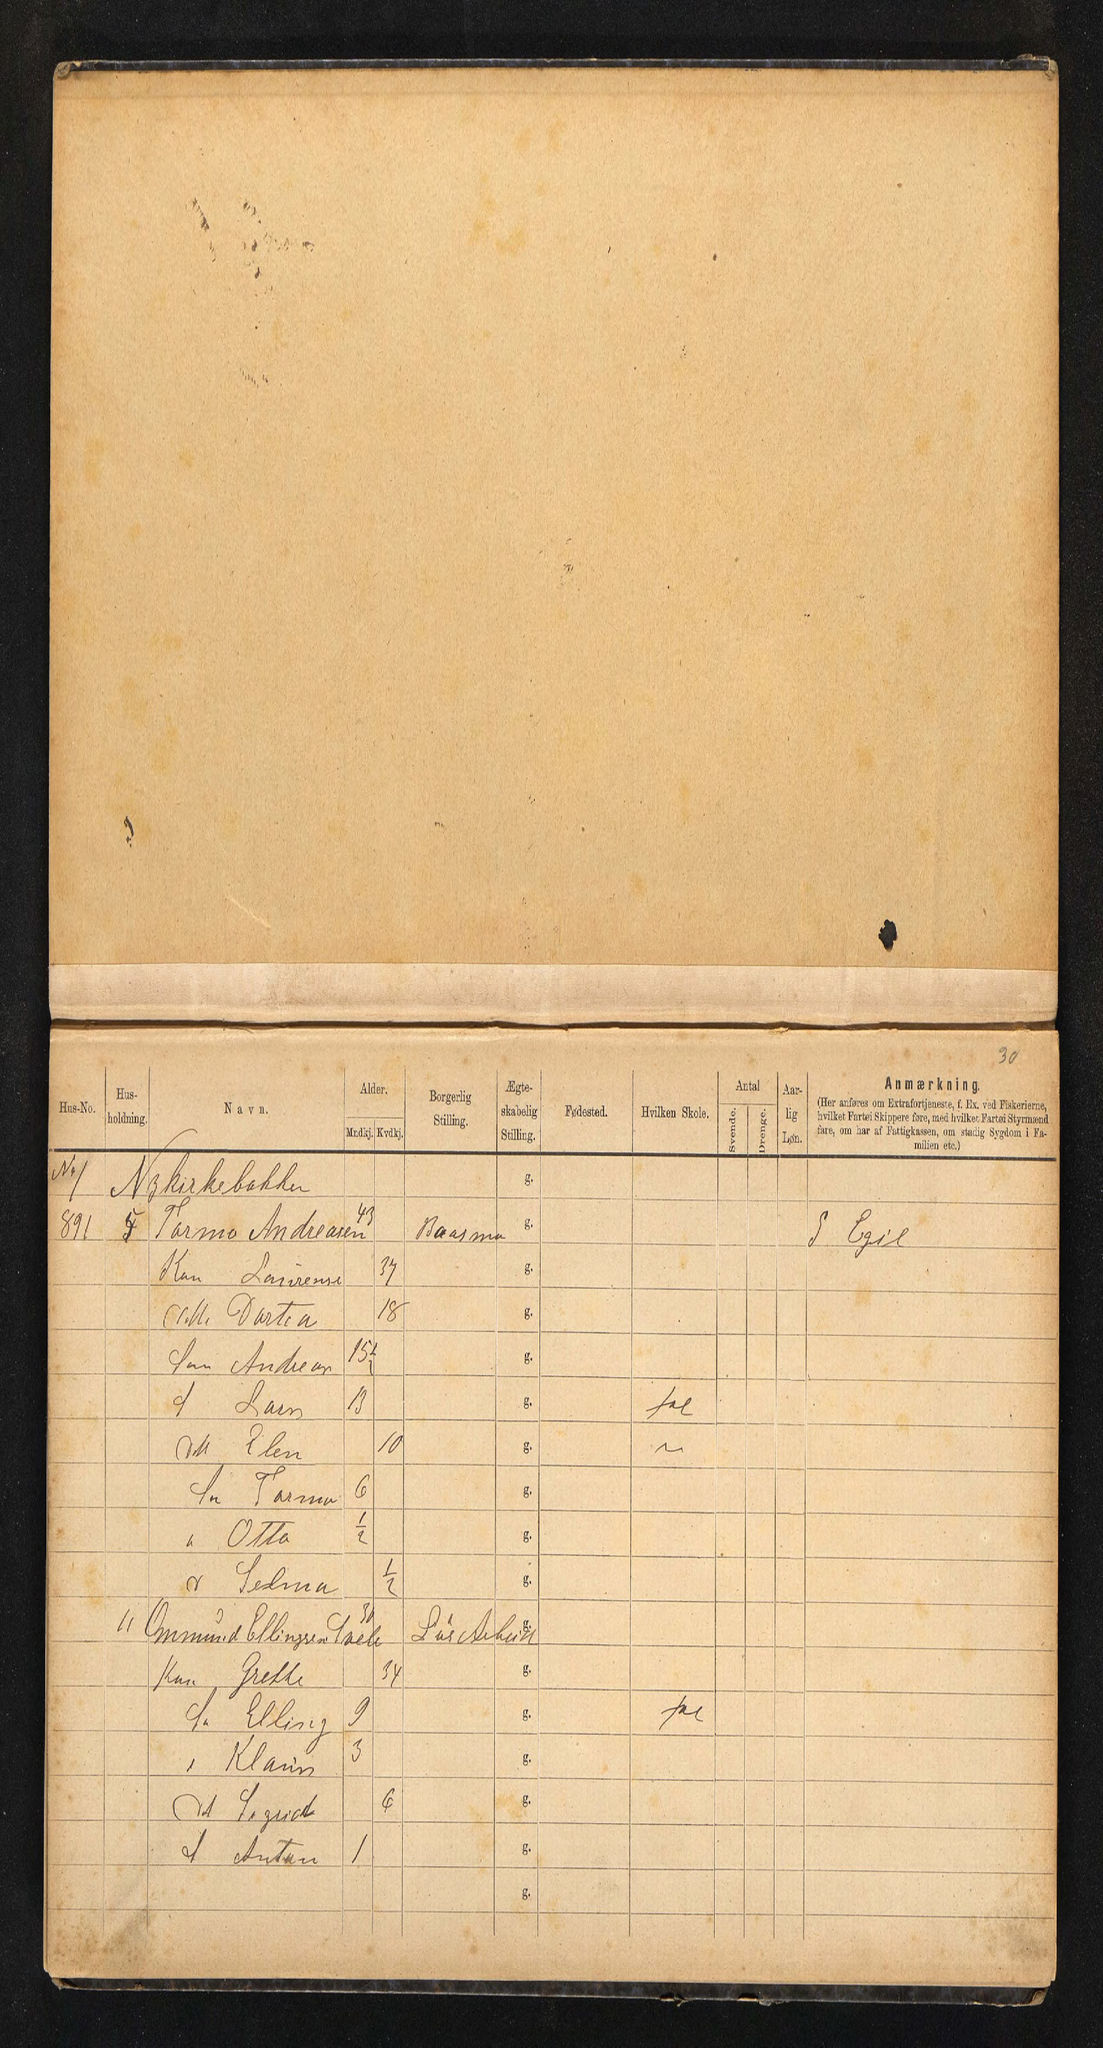 30
Hus-No. Hus-holdning. Navn. Alder. Mndkj. Kvdkj. Borgerlig Stilling. Ægte-skabelig Stilling. Fødested. Hvilken Skole. Antal Svende. Drenge. Aar-lig Løn. Anmærkning.
(Her anføres om Extrafortjeneste, f. Ex. ved Fiskerierne, hvilket Fartøi Skippere føre, med hvilket Fartøi Styrmænd fare, om har af Fattigkassen, om stadig Sygdom i Familien etc.)
No 1 Nykirkebakken g.
891 5 Tormo Andreasen 43 Baasmo g. S Egil
Kon Laurense 37 g.
Dtt. Dortea 18 g.
Søn Andreas 15½ g.
S Lars 13 g. fol
Dtt Elen 10 g. ~
Sn Tormo 6 g.
" Otto ½ g.
d Selma ½ g.
11 Ommund Ellingsen Svele 30 Løs Arbeid g.
Kon Grethe 34 g.
Sn Elling 9 g. fol
" Klaus 3 g.
Dt Sigrid 6 g.
S Anton 1 g.
g.